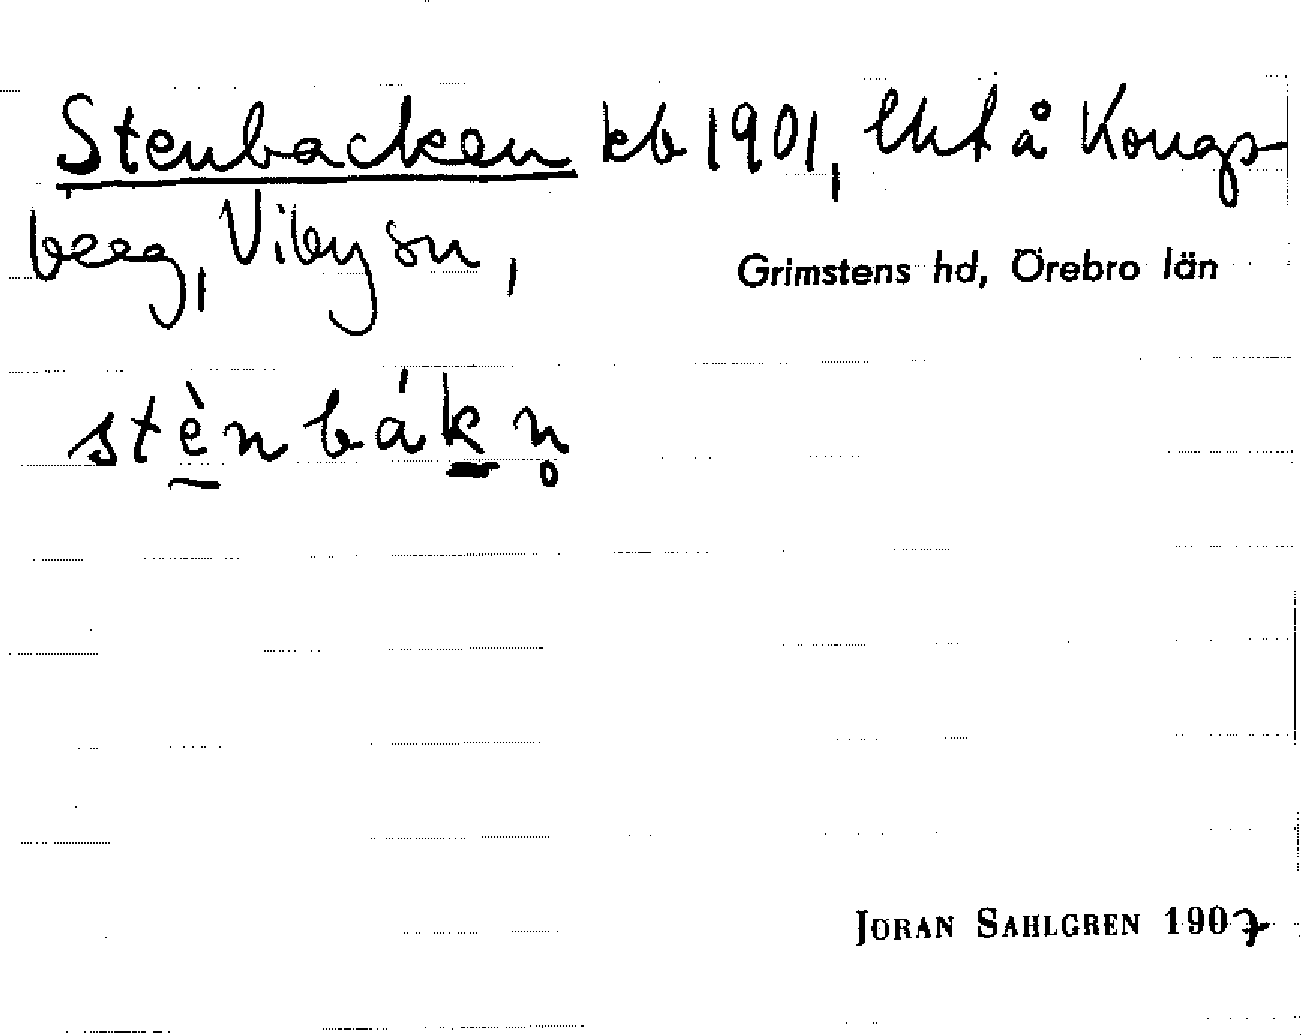 Stenbacken kb 1901, lht å Kongs-
berg, Viby sn,
Grimstens hd, Örebro län
stè̱nbáḵn̥
JÖRAN SAHLGREN 1907